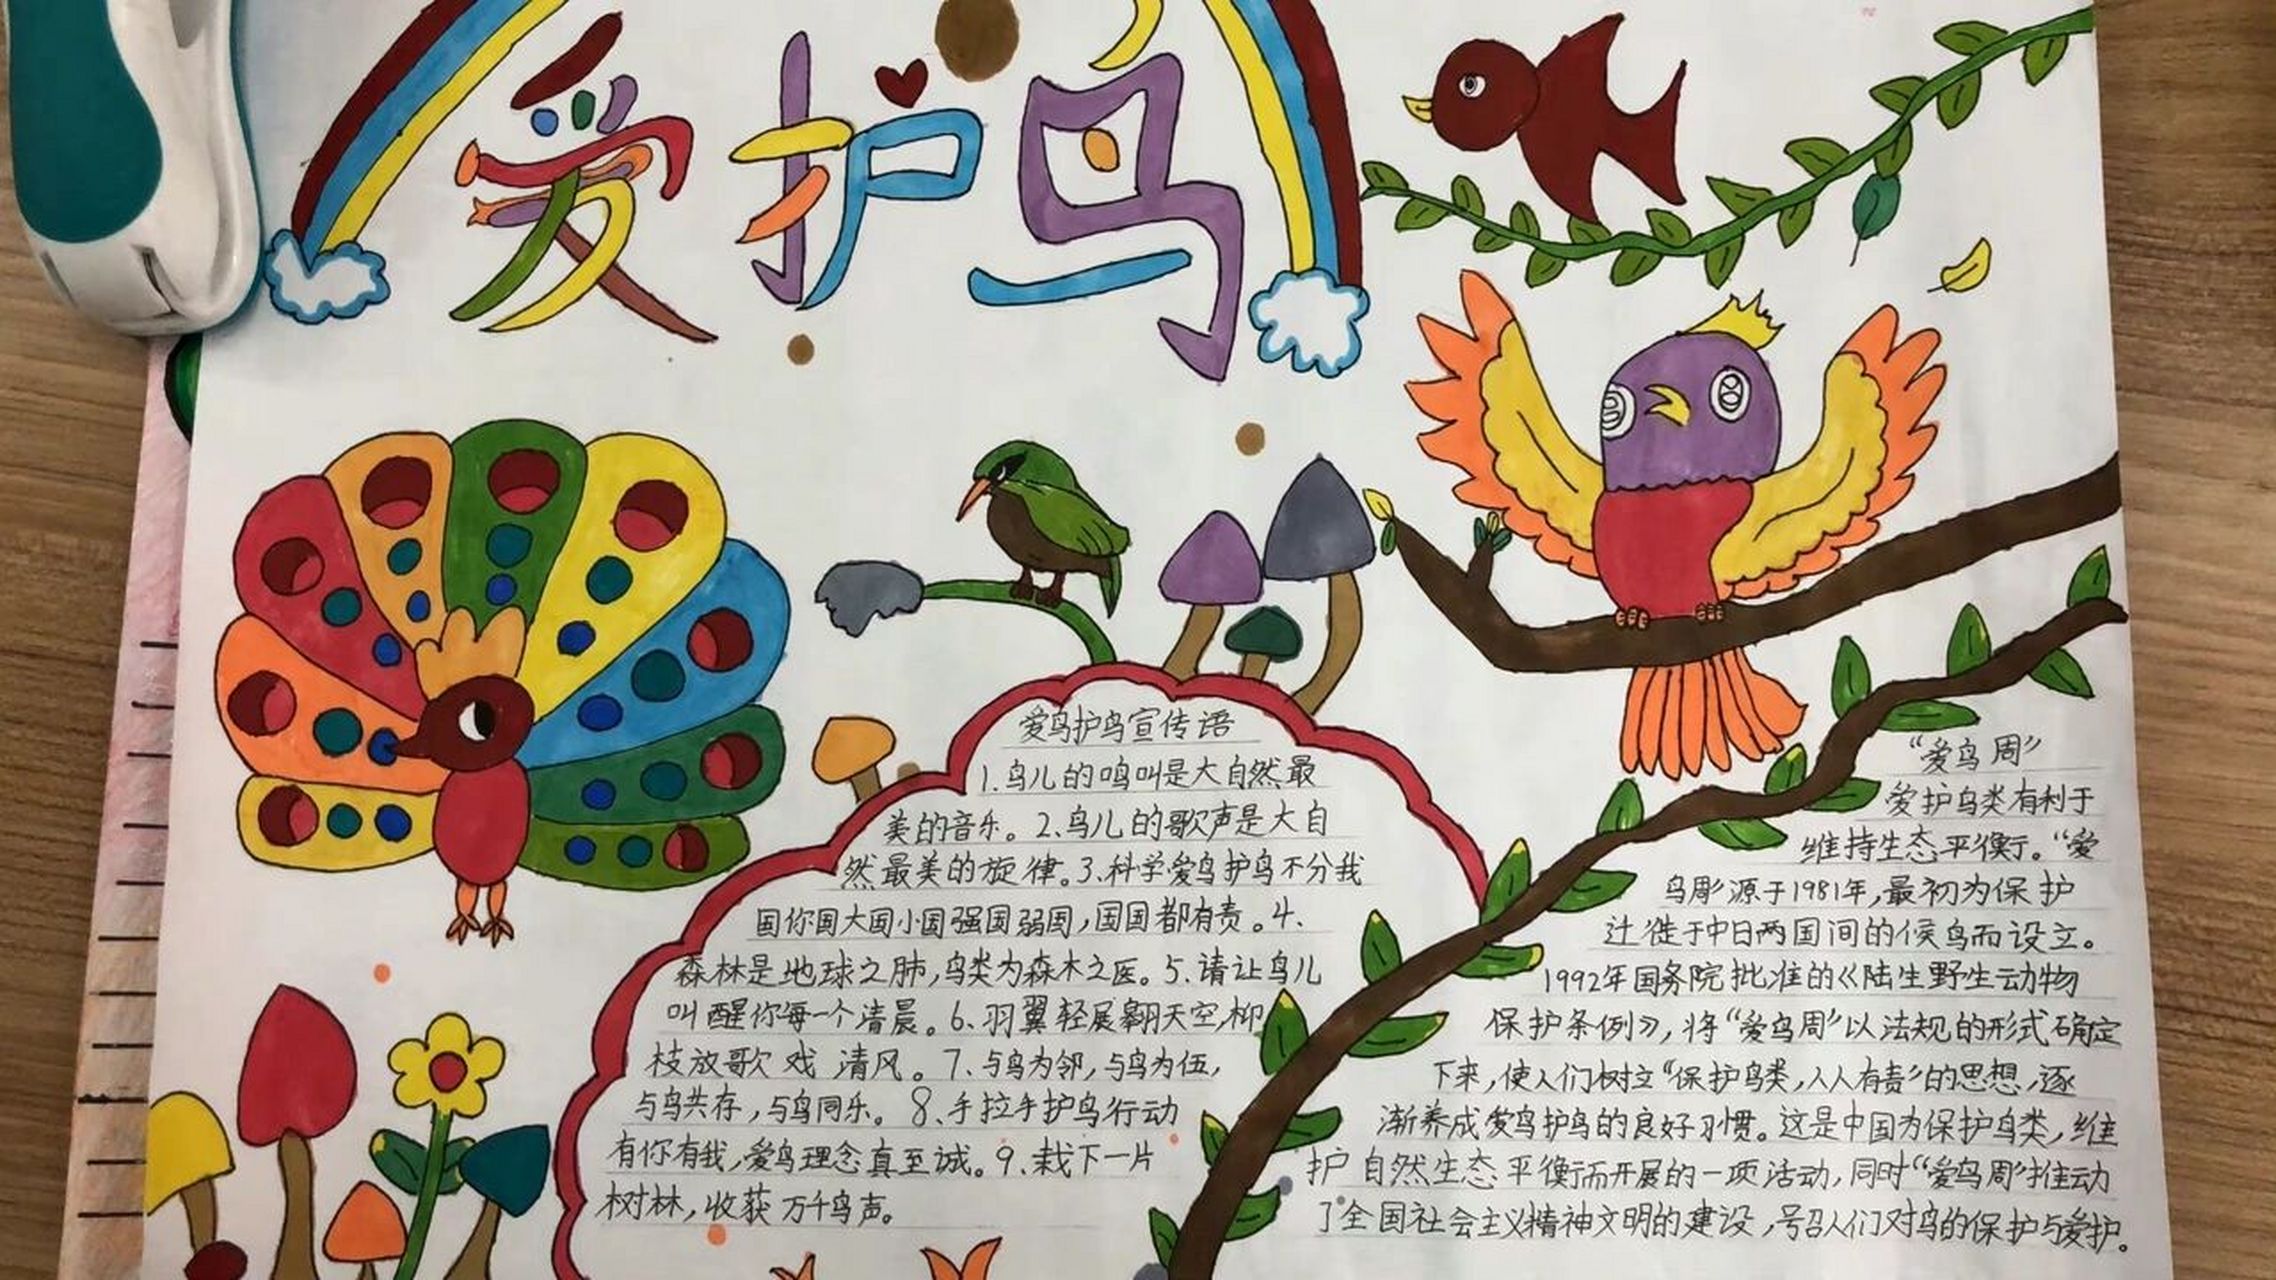 爱护鸟
爱鸟护鸟宣传语
1.鸟儿的鸣叫是大自然最
美的音乐。2.鸟儿的歌声是大自
然最美的旋律。3.科学爱鸟护鸟不分我
国你国大国小国强国弱国，国国都有责。4、
森林是地球之肺，鸟类为森木之医。5.请让鸟儿
叫醒你每一个清晨。6、羽翼轻展翱天空，柳
枝放歌戏清风。7、与鸟为邻，与鸟为伍，
与鸟共存，与鸟同乐。8、手拉手护鸟行动
有你有我，爱鸟理念真至诚。9、栽下一片
树林，收获万千鸟声。
“爱鸟周”
爱护鸟类有利于
维持生态平衡。“爱
鸟周”源于1981年，最初为保护
迁徙于中日两国间的候鸟而设立。
1992年国务院批准的《陆生野生动物
保护条例》，将“爱鸟周”以法规的形式确定
下来，使人们树立“保护鸟类，人人有责”的思想，逐
渐养成爱鸟护鸟的良好习惯。这是中国为保护鸟类，维
护自然生态平衡而开展的一项活动，同时“爱鸟周”推动
了全国社会主义精神文明的建设，号召人们对鸟的保护与爱护。